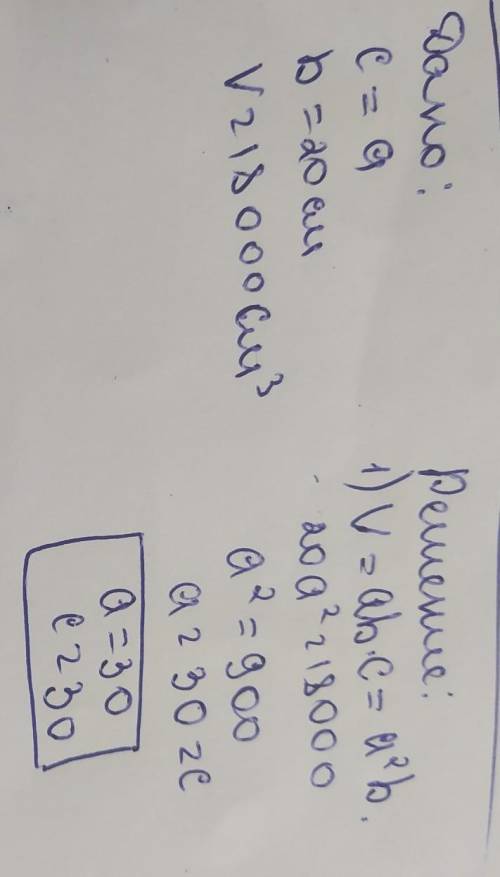 Дано:
c = a
b = 20 см
V = 18000 см³
Решение:
1) V = ab·c = a²b.
20a² = 18000
a² = 900
a = 30 = c
a = 30
c = 30